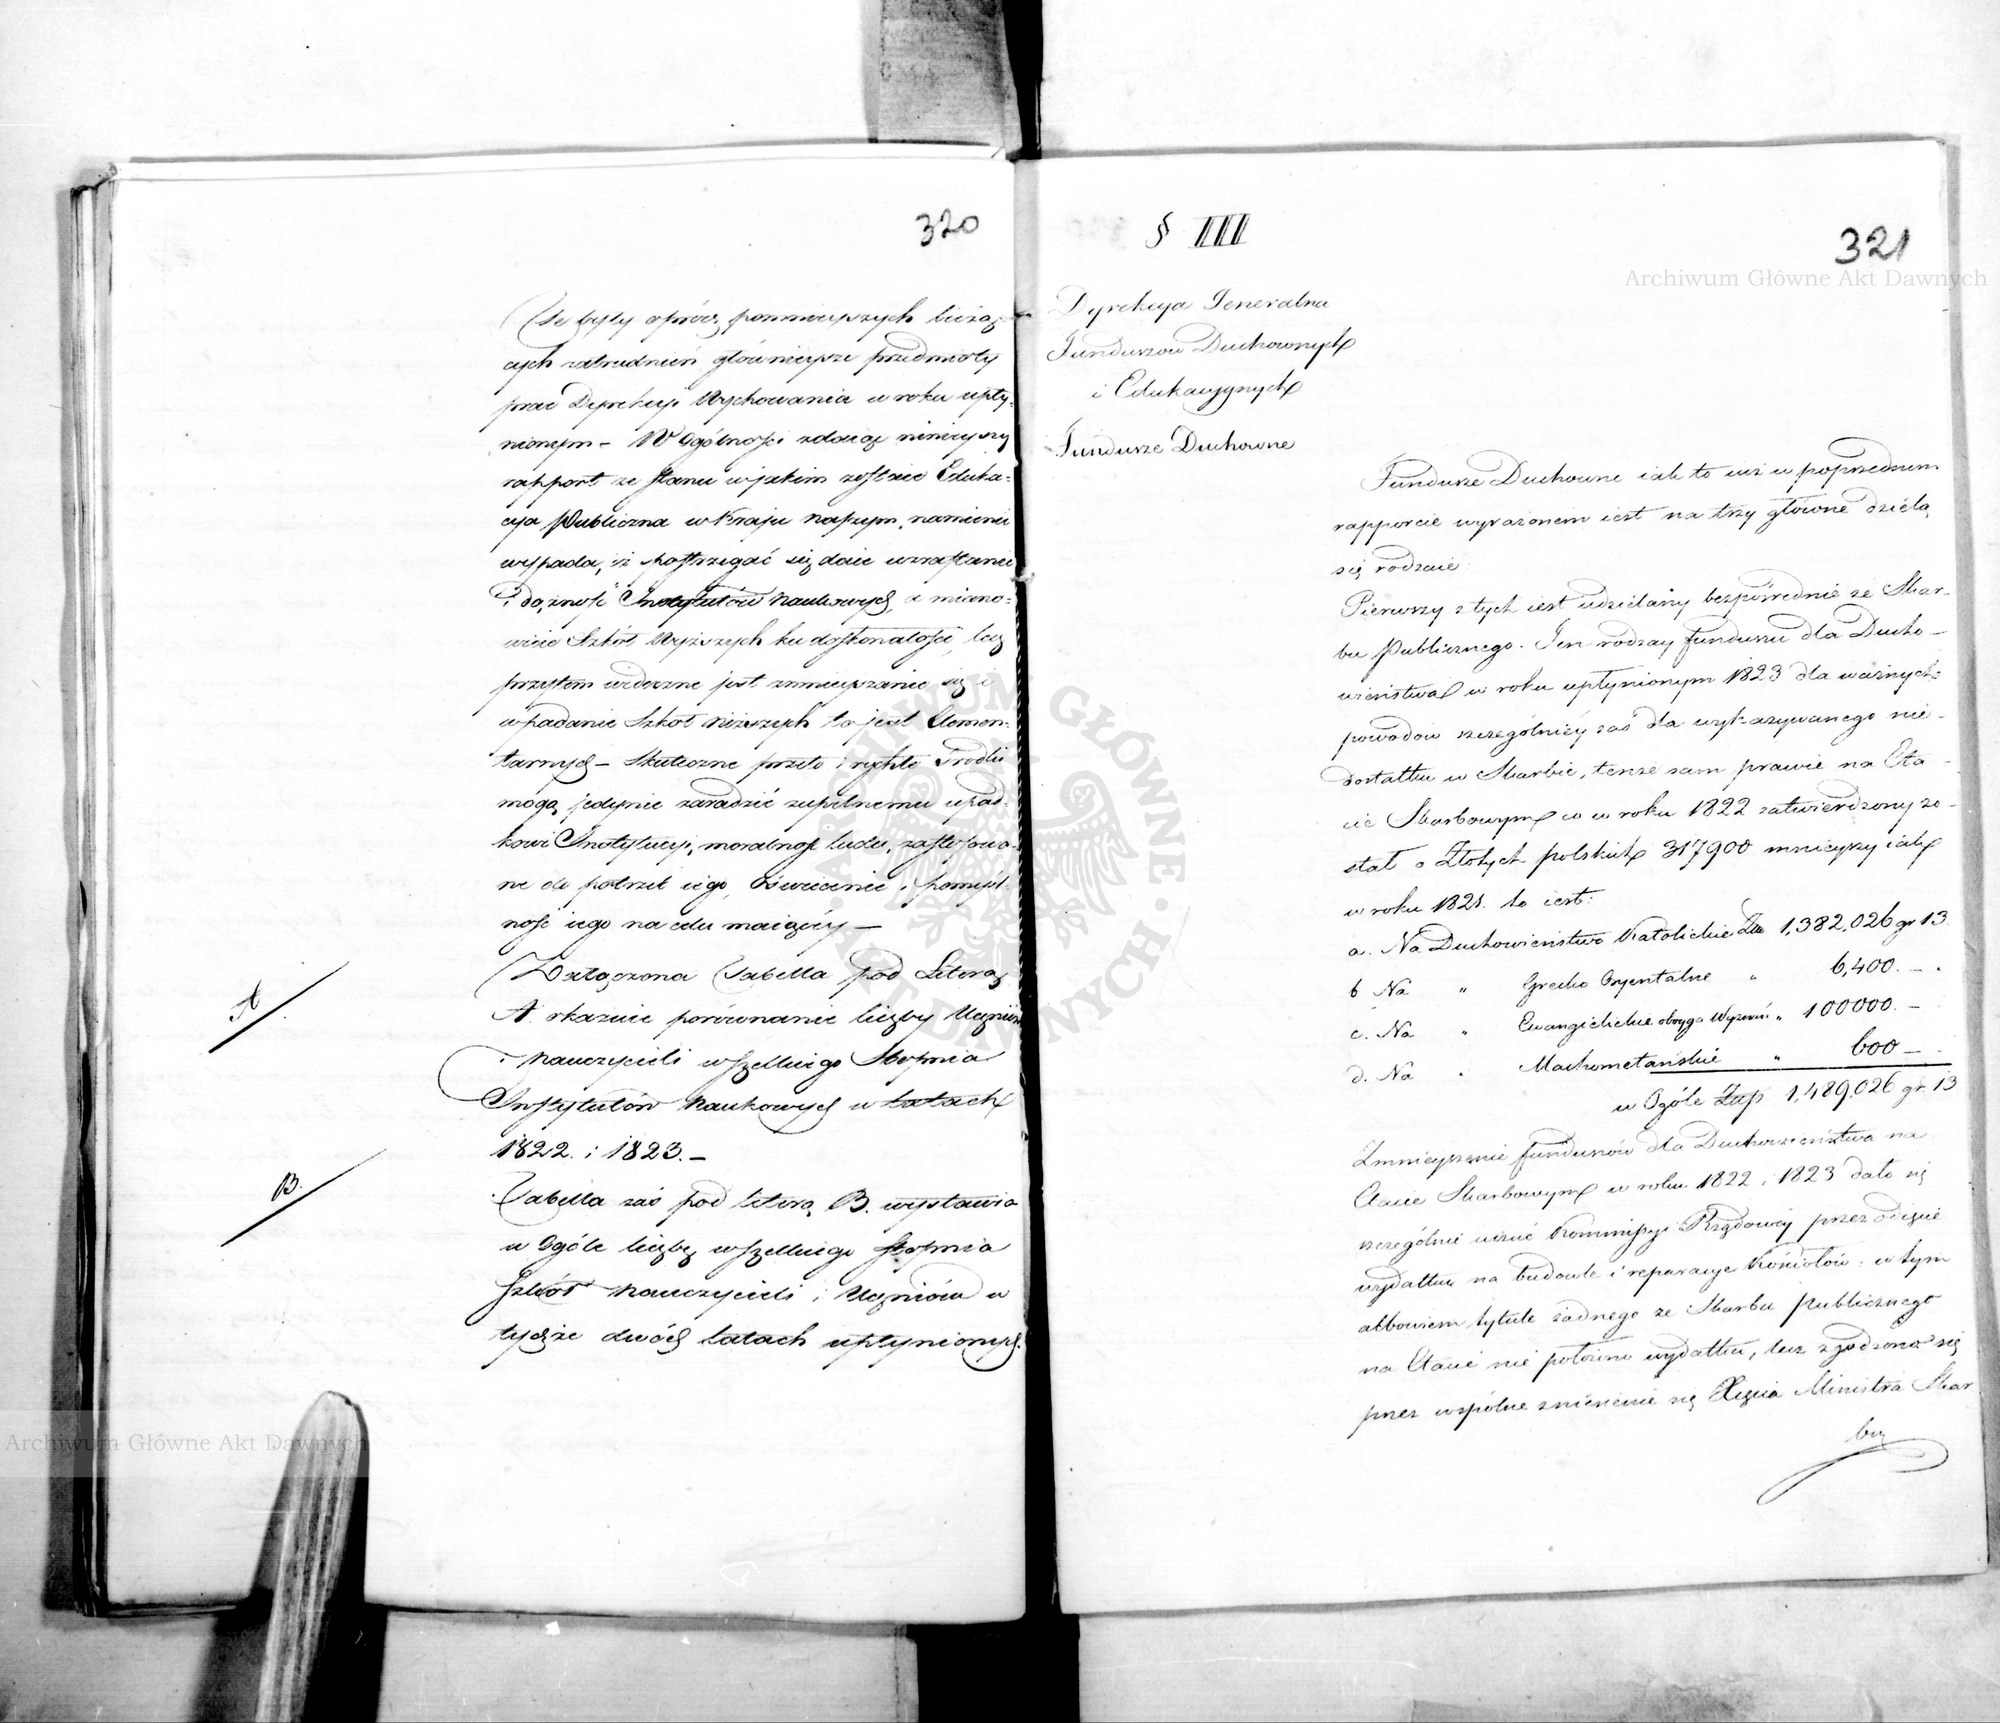 320
Te były oprócz pomnieyszych bieżą-
cych zatrudnień główniejsze przedmioty
prac Dyrekcyi Wychowania w roku upły-
nionym – W Ogólności zdaiąc ninieyszy
rapport ze stanu w jakim zostaie Eduka-
cya Publiczna w Kraju naszym, namienić
wypada, iż postrzegać się daie wzrastanie
i dążność Instytutów Naukowych, a miano-
wicie Szkół Wyższych ku doskonałości, lecz
przytem widoczne jest zmnieyszanie się i
upadanie Szkół niższych to jest Elemen-
tarnych – Skuteczne przeto i rychłe Srodki
mogą jedynie zaradzić zupełnemu upad-
kowi Instytucyi, moralność ludu, zastosowa-
ne do potrzeb iego, Oświecenie i pomyśl-
ność iego na celu maiącéy –
Załączona Tabella pod Literą
A. okazuie porównanie liczby Uczniów
i Nauczycieli wszelkiego Stopnia
Instytutów Naukowych w latach
1822. i 1823. –
Tabella zaś pod literą B. wystawia
w Ogóle liczbę wszelkiego stopnia
Szkół Nauczycieli i Uczniów w
tychże dwóch latach upłynionych.
A
B.
§ III
321
Dyrekcya Generalna
Funduszow Duchownych
i Edukacyynych
Fundusze Duchowne
Fundusze Duchowne iak to iuż w poprzednim
rapporcie wyrażonem iest na trzy główne dzielą
się rodzaie:
Pierwszy z tych iest udzielany bezpośrednie ze Skar-
bu Publicznego. Ten rodzay funduszu dla Ducho-
wieństwa w roku upłynionym 1823 dla ważnych
powodow szczególniéy zaś dla wykazywanego nie-
dostatku w Skarbie, tenże sam prawie na Eta-
cie Skarbowym co w roku 1822 zatwierdzony zo-
stał o Złotych polskich 317900 mnieyszy iak
w roku 1821. to iest:
a. Na Duchowieństwo Katolickie Złp 1,382,026 gr 13.
b Na " Grecko Oryentalne " 6,400. – .
c. Na " Ewangielickie oboyga Wyznań " 100000. –
d. Na " Machometańskie " 600 –
w Ogóle Złłp 1,489,026 gr. 13
Zmnieyszenie funduszów dla Duchowieństwa na
Etacie Skarbowym w roku 1822 i 1823 dało się
szczególnie uczuć Kommissyi Rządowéy przez odięcie
wydatku na budowle i reparacye Kościołów: w tym
albowiem tytule żadnego ze Skarbu Publicznego
na Etacie nie położono wydatku, lecz zgodzono się
przez wspólne zniesienie się Xięcia Ministra Skar
bu
Archiwum Główne Akt Dawnych
Archiwum Główne Akt Dawnych
ARCHIWUM GŁÓWNE · AKT DAWNYCH ·